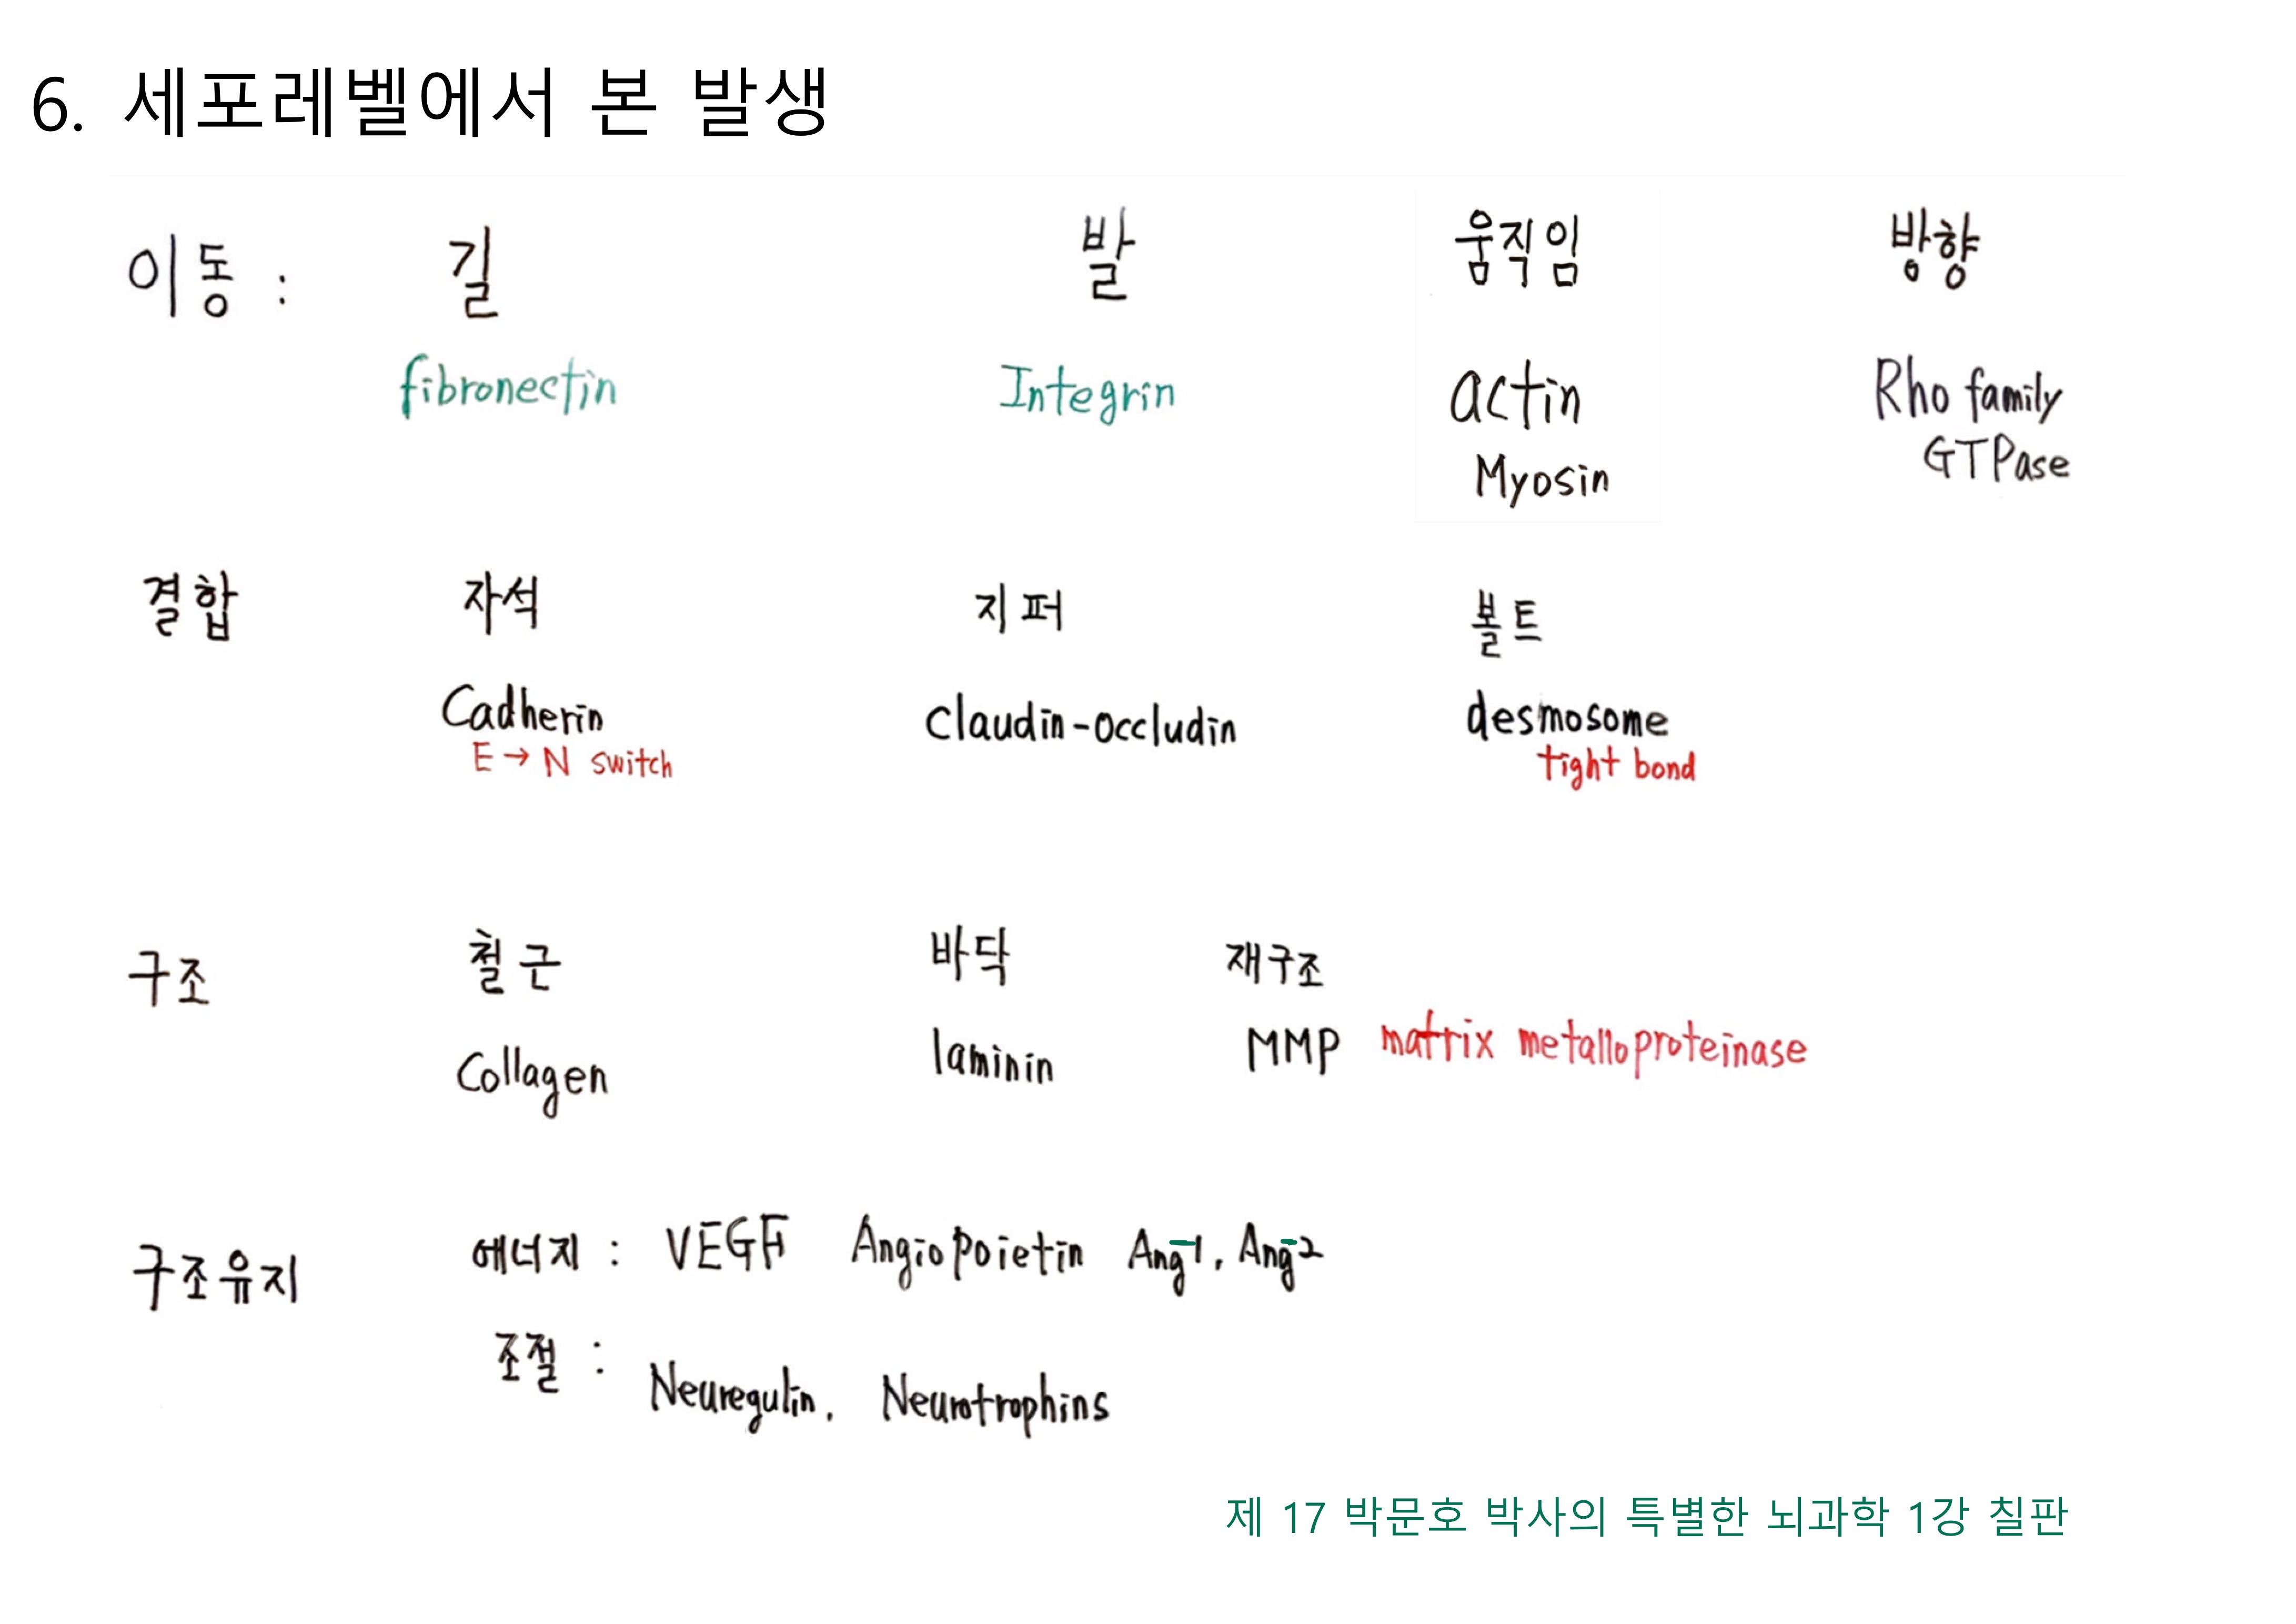 6. 세포레벨에서 본 발생
이동 : 길 발 움직임 방향
fibronectin Integrin actin Rho family
Myosin GTPase
결합 자석 지퍼 볼트
Cadherin Claudin-Occludin desmosome
E → N switch tight bond
구조 철근 바닥 재구조
Collagen laminin MMP matrix metalloproteinase
구조유지 에너지 : VEGF Angiopoietin Ang-1, Ang-2
조절 : Neuregulin, Neurotrophins
제 17 박문호 박사의 특별한 뇌과학 1강 칠판